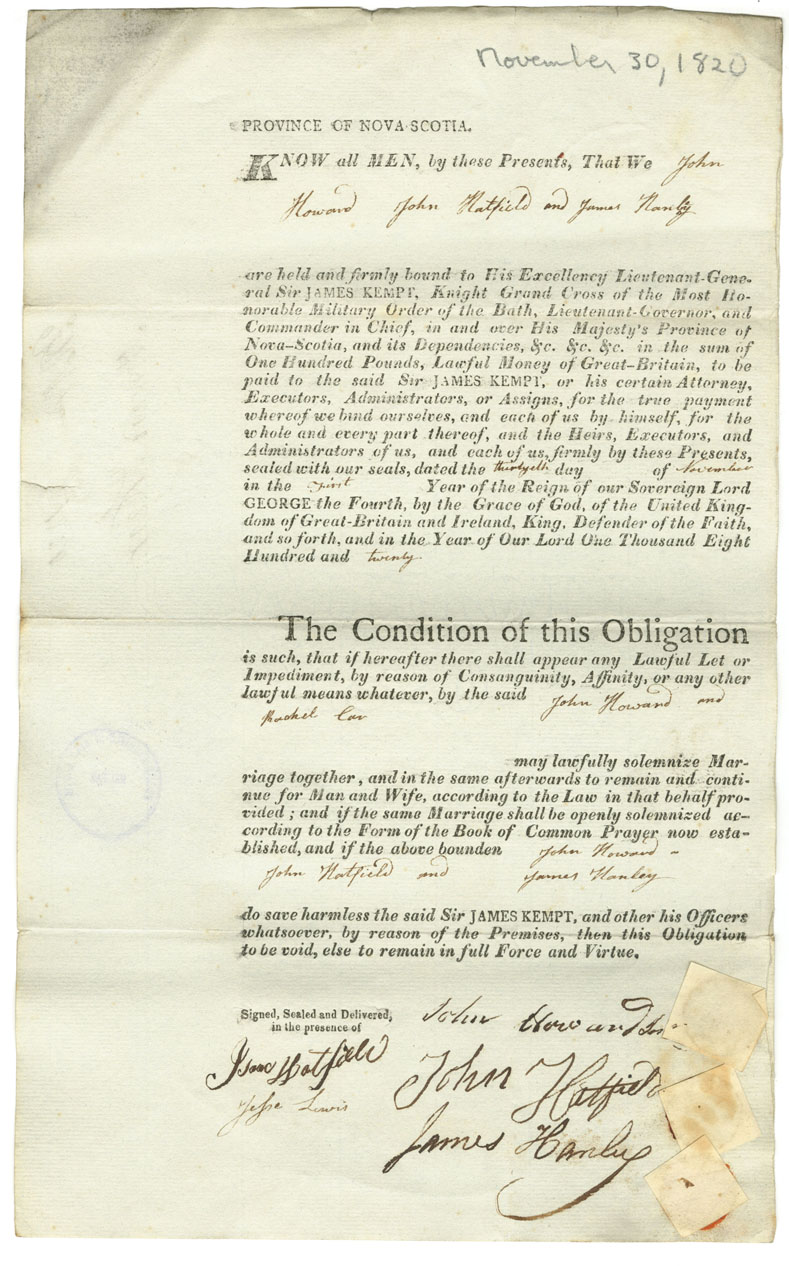 November 30, 1820
PROVINCE OF NOVA-SCOTIA.
KNOW all MEN, by these Presents, That We John
Howard John Hatfield and James Hanly
are held and firmly bound to His Excellency Lieutenant-Gene-
ral Sir JAMES KEMPT, Knight Grand Cross of the Most Ho-
norable Military Order of the Bath, Lieutenant-Governor, and
Commander in Chief, in and over His Majesty's Province of
Nova-Scotia, and its Dependencies, &c. &c. &c. in the sum of
One Hundred Pounds, Lawful Money of Great-Britain, to be
paid to the said Sir JAMES KEMPT, or his certain Attorney,
Executors, Administrators, or Assigns, for the true payment
whereof we bind ourselves, and each of us by himself, for the
whole and every part thereof, and the Heirs, Executors, and
Administrators of us, and each of us, firmly by these Presents,
sealed with our seals, dated the thirtyeth day of November
in the First Year of the Reign of our Sovereign Lord
GEORGE the Fourth, by the Grace of God, of the United King-
dom of Great-Britain and Ireland, King, Defender of the Faith,
and so forth, and in the Year of Our Lord One Thousand Eight
Hundred and twenty
The Condition of this Obligation
is such, that if hereafter there shall appear any Lawful Let or
Impediment, by reason of Consanguinity, Affinity, or any other
lawful means whatever, by the said John Howard and
Rachel
may lawfully solemnize Mar-
riage together, and in the same afterwards to remain and conti-
nue for Man and Wife, according to the Law in that behalf pro-
vided; and if the same Marriage shall be openly solemnized ac-
cording to the Form of the Book of Common Prayer now esta-
blished, and if the above bounden John Howard -
John Hatfield and James Hanley
do save harmless the said Sir JAMES KEMPT, and other his Officers
whatsoever, by reason of the Premises, then this Obligation
to be void, else to remain in full Force and Virtue.
Signed, Sealed and Delivered,
in the presence of
John Howard
Isaac Hatfield
John Hatfield
Jesse Lewis
James Hanley